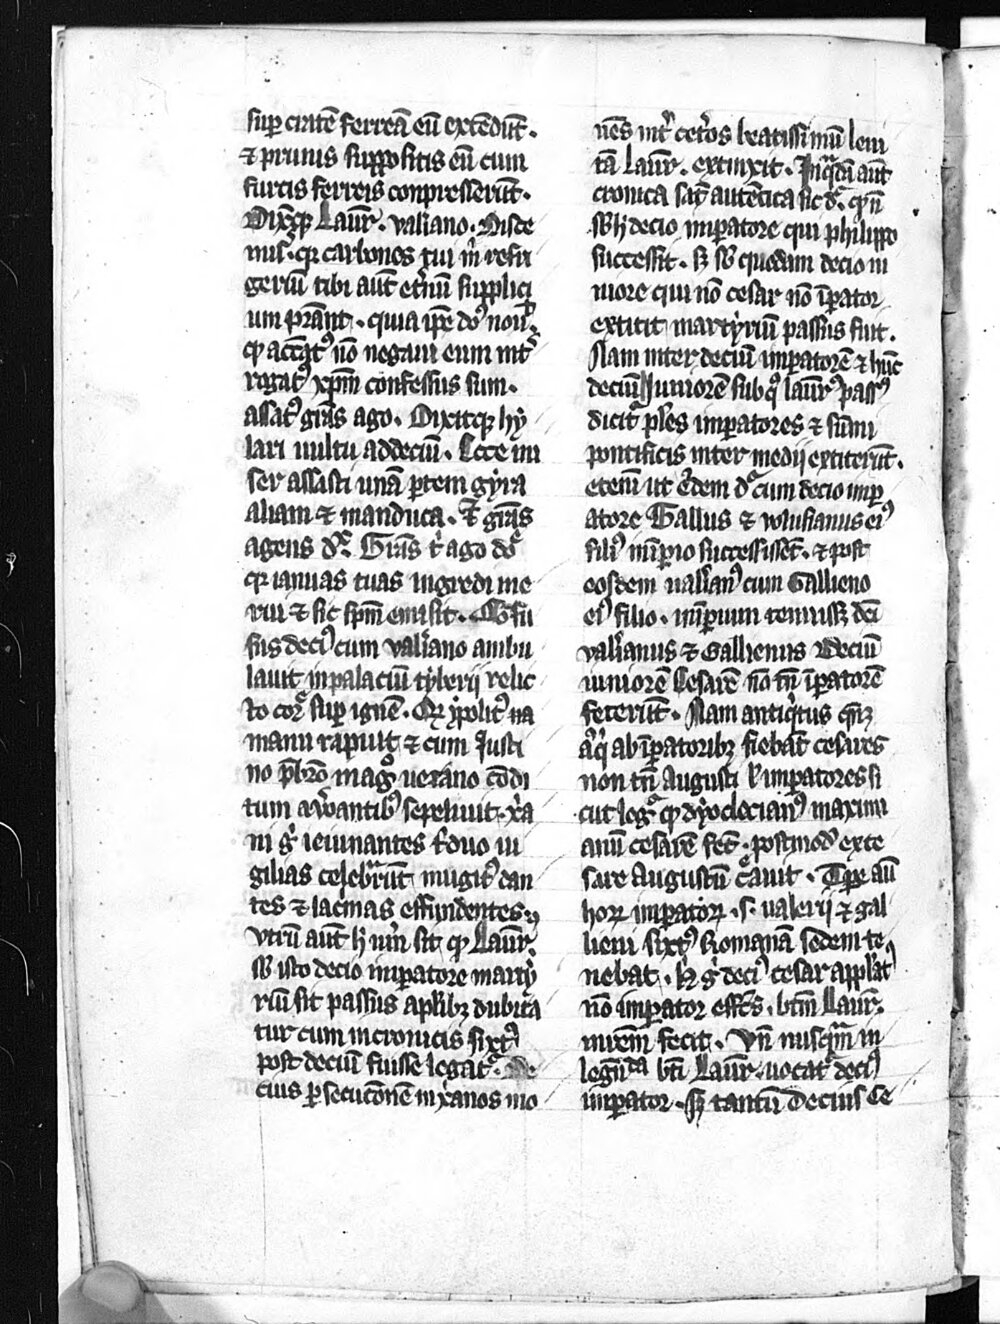 suꝑ cratē ferreā eū extēdūt .
⁊ prunis suppositis eū cum
furcis ferreis conpresserūt .
Dixitqꝫ Laur̄ . valiano . Disce
mis̾ . qꝛ carbones tui m̄ refri
geriū tibi aūt et̾nū supplici
um p̄stāt . quia ip̄e dn̄s nouit
qꝫ accusatꝰ nō negaui eum int̾
rogatꝰ xp̄m confessus sum .
assatꝰ gr̄as ago . Dixitqꝫ hy
lari uultu ad deciū . Ecce mi
ser assasti unā ꝑtem gyra
aliam ⁊ manduca . Et gr̄as
agens d̄r . Gr̄as t̾ ago dn̄e
qꝛ ianuas tuas ingredi me
rui ⁊ sic sp̄m emisit . Cōfu
sus deciꝰ cum valiano ambu
lauit in palaciū tyberij relic
to cor̄ suꝑ ignē . Qꝫ ypolitꝰ ma
ne rapuit ⁊ cum Justi
no p̄bro mag° uerano cōdi
tum aromantibꝰ sepeliuit . xp̄ia
ni g̾ ieiunantes t̾duo ui
gilias celebrarūt mugitꝰ dan
tes ⁊ lac̾mas effundentes .
Vtrū aūt h̾ uerū sit qꝫ Laur̄ .
sb̾ isto decio imꝑatore marty
riū sit passus apd̾ plures dubita
tur cum in cronicis sixtꝰ
post deciū fuisse legatr̄ . De
cius ꝑsecucōnem in xp̄ianos mo
uēs int̾ cet̾os beatissimū leui
tā Laur̄ . extinxit . In q̾dā aūt
cronica satꝭ autētica sic d̄r . qꝫ n̄
sb̾ h̾ decio imꝑatore qui philippo
successit . sꝫ sb̾ quodam decio iu
niore qui nō cesar nō īꝑator
extitit martyriū passus fuit .
Nam inter deciū imꝑatorē ⁊ hūc
deciū Juniorē sub q° laurꝰ passꝰ
dicitr̄ pl̾es imꝑatores ⁊ sūmi
pontificis inter medij extiterūt .
etenī ut ibidem d̄r cum decio imꝑ
atore Gallus ⁊ volusianus eiꝰ
filiꝰ inꝑio successisset . ⁊ post
eosdem ualianꝰ cum Gallieno
eiꝰ filio . imꝑium tenuissꝫ dc̄i
valianus ⁊ Gallienus Deciū
iuniorē Cesarē nō tn̄ īꝑatorē
fecerūt . Nam antiq̾tus
ab īꝑatoribꝫ fiebāt cesares
non tn̄ Augusti l̾ imꝑatores si
cut legr̄ qꝫ dyoclecianꝰ maximi
anū cesarē fec̄ . postmodū ex ce
sare Augustū c̾auit . Tꝑe aūt
horꝝ imꝑatorꝝ . s . valerij ⁊ gal
lieni sixtꝰ Romanā sedem te
nebat . h̾ g̾ deciꝰ cesar app̄llatꝰ
nō imꝑator effcūs . btm̄ Laur̄ .
mr̄em fecit . Vn̄ nusq̄m in
legenda bt̄i Laur̄ . uocatr̄ deciꝰ
imꝑator . sꝫ tantū Decius Ce